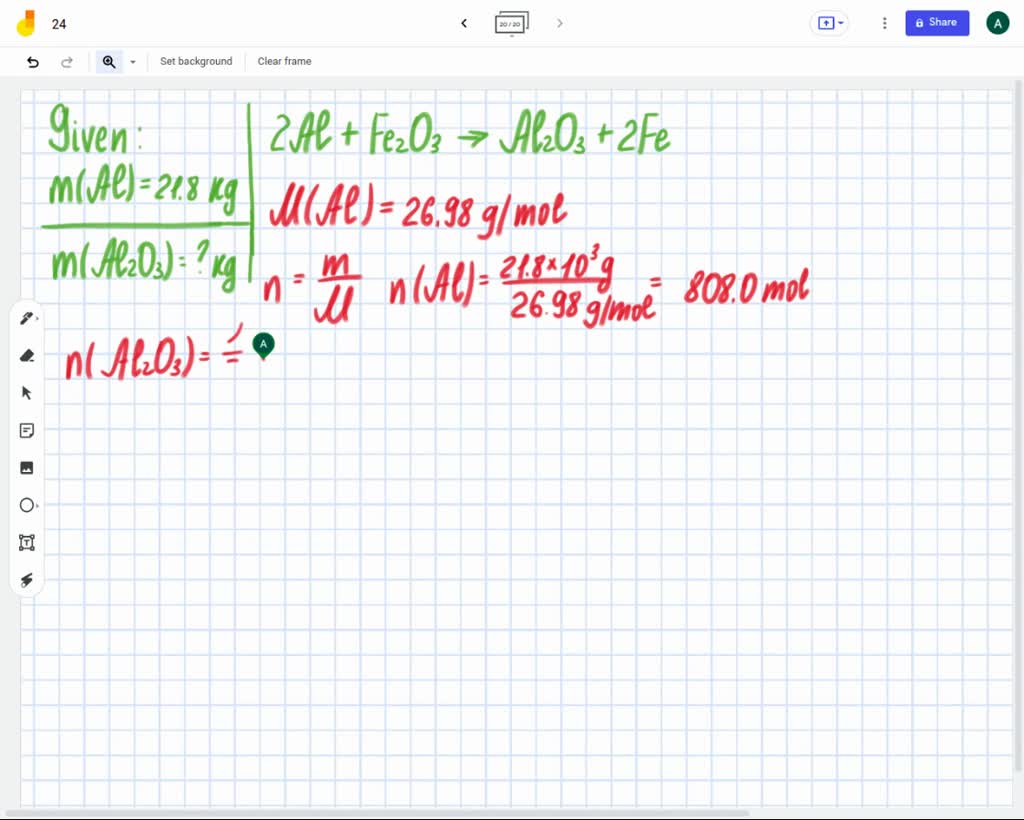 24
20 / 20
Share
A
Set background
Clear frame
Given:
m(Al) = 21.8 kg
m(Al₂O₃) = ? kg
2Al + Fe₂O₃ → Al₂O₃ + 2Fe
M(Al) = 26.98 g/mol
n = m/M n(Al) = 21.8 × 10³ g / 26.98 g/mol = 808.0 mol
n(Al₂O₃) =
A